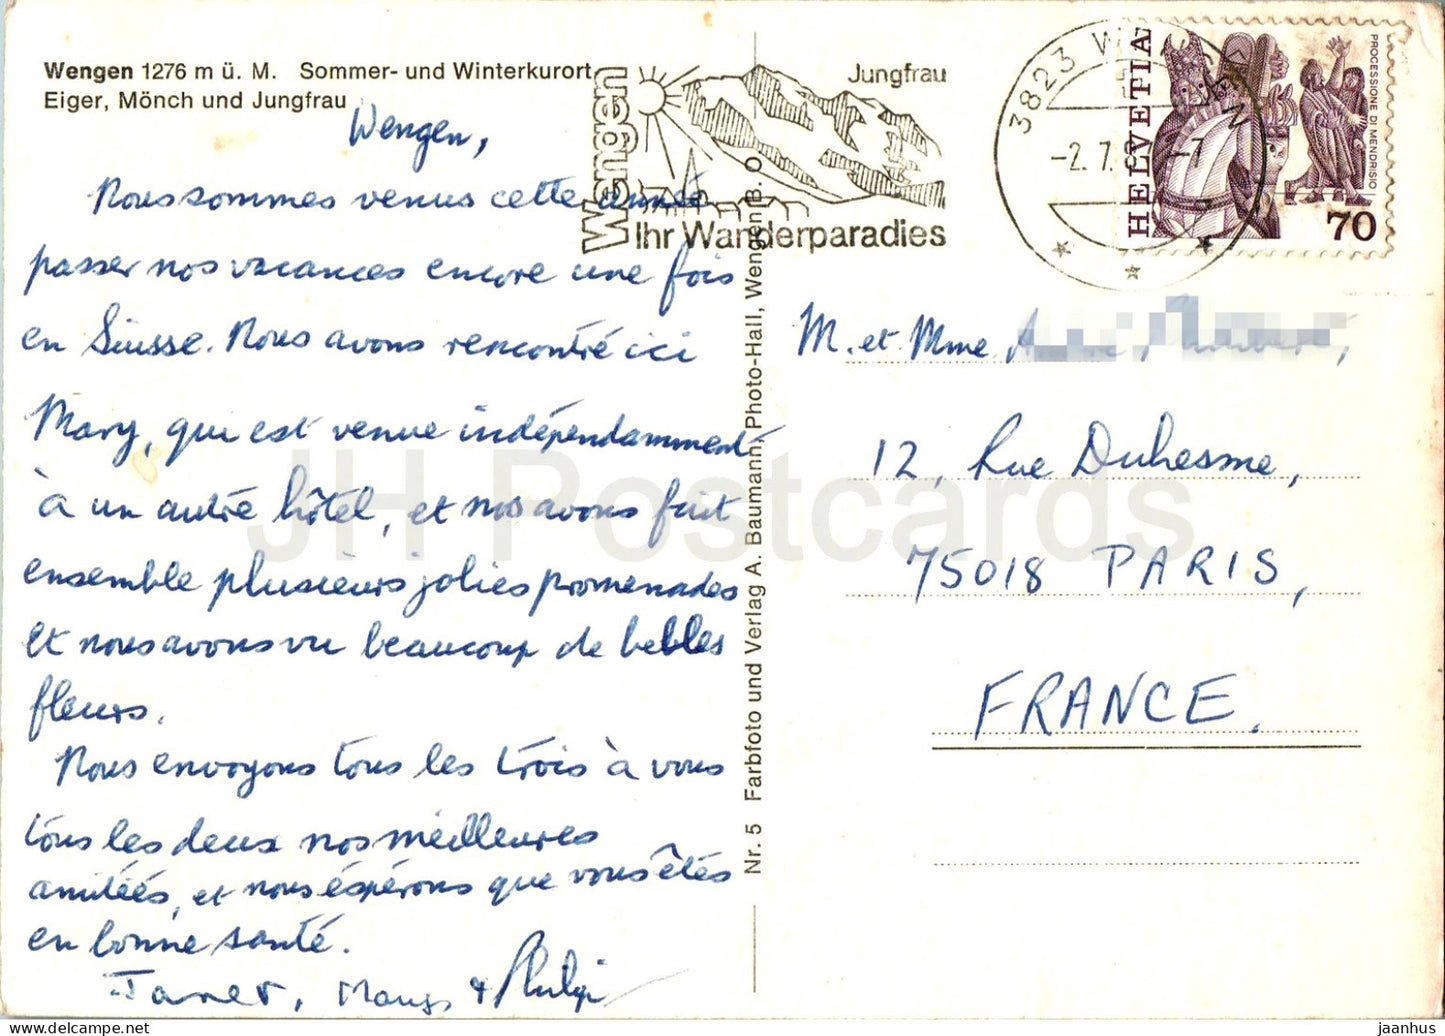 Wengen 1276 m ü. M. Sommer- und Winterkurort
Eiger, Mönch und Jungfrau
Wengen,
Nous sommes venus cette année
passer nos vacances encore une fois
en Suisse. Nous avons rencontré ici
Mary, qui est venue indépendamment
à un autre hôtel, et nos avons fait
ensemble plusieurs jolies promenades
et nous avons vu beaucoup de belles
fleurs.
Nous envoyons tous les trois à vous
tous les deux nos meilleures
amitiés, et nous éspérons que vous êtes
en bonne santé.
Janet, Mary, & Philip
Wengen
Jungfrau
Ihr Wanderparadies
3823 WENGEN
-2.7.8 -7
HELVETIA
PROCESSIONE DI MENDRISIO
70
Nr. 5 Farbfoto und Verlag A. Baumann, Photo-Hall, Wengen B. O
M. et Mme
12, Rue Duhesme,
75018 PARIS,
FRANCE.
JH Postcards
jaanhus—www.delcampe.net